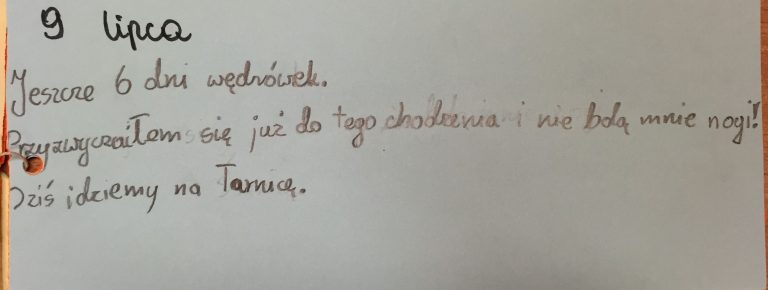 9 lipca
Jeszcze 6 dni wędrówek.
Przyzwyczaiłem się już do tego chodzenia i nie bolą mnie nogi!
Dziś idziemy na Tarnicę.